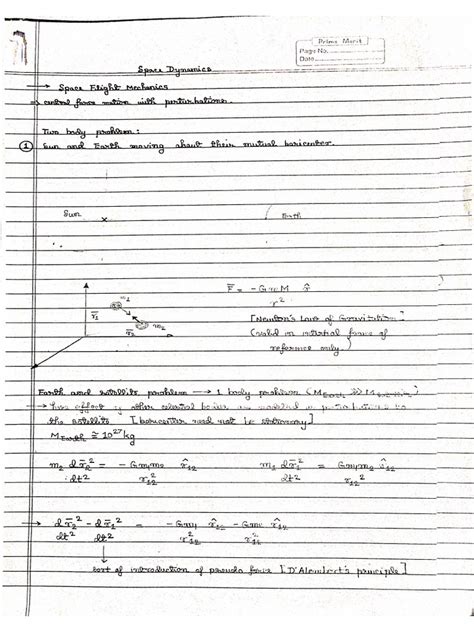 Prime Merit
Page No.
Date
Space Dynamics
→ Space Flight Mechanics
⇒ central force motion with perturbations.
Two body problem:
① Sun and Earth moving about their mutual baricenter.
Sun × Earth
m1
r̄1
m2
r̄2
F̄ = -GmM r̂
r²
[Newton's Law of Gravitation]
(valid in inertial frame of
reference only)
Earth and satellite problem → 1 body problem (M_Earth >> M
→ effect of other celestial bodies
the satellite [baricenter need not be stationary]
M_Earth ≅ 10²⁷ kg
m2 d r̄2² = -Gm1m2 r̂12 m1 d r̄1² = Gm1m2 r̂12
dt² r12² dt² r12²
→ d r̄2² - d r̄1² = -Gm1 r̂12 - Gm2 r̂12
dt² dt² r12² r12²
sort of introduction of pseudo force [D'Alembert's principle]